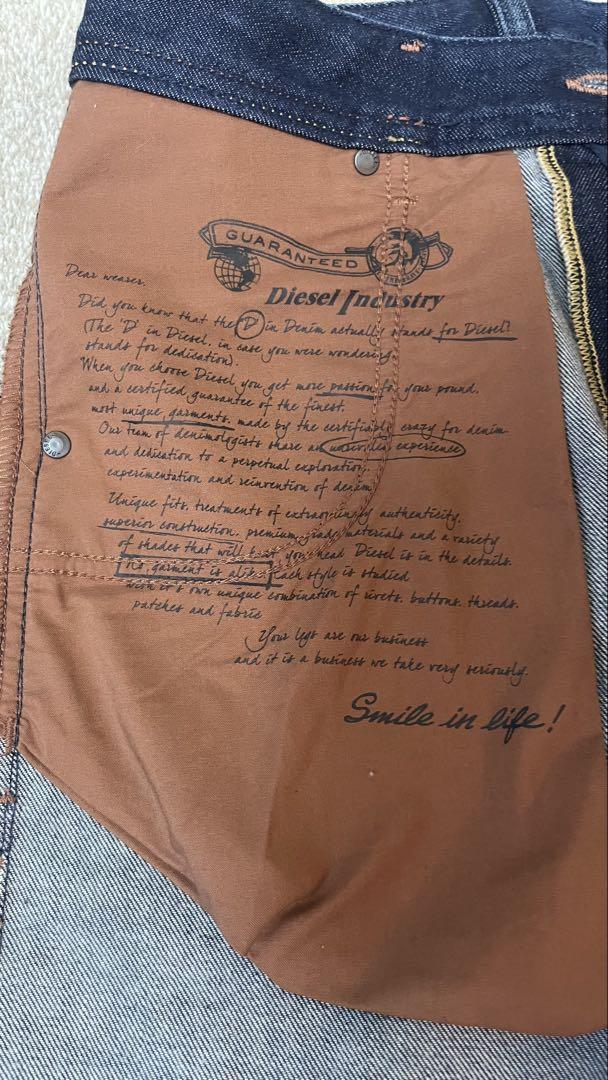 GUARANTEED
Diesel Industry
Dear wearer,
Did you know that the 'D' in Denim actually stands for Diesel?
(The 'D' in Diesel, in case you were wondering,
stands for dedication).
When you choose Diesel you get more passion for your pound,
and a certified guarantee of the finest,
most unique garments, made by the certifiably crazy for denim.
Our team of denimologists share an unrivaled experience
and dedication to a perpetual exploration,
experimentation and reinvention of denim.
Unique fits, treatments of extraordinary authenticity,
superior construction, premium grade materials and a variety
of shades that will your head Diesel is in the details.
No garment is alike. Each style is studied
with it's own unique combination of rivets, buttons, threads,
patches and fabric
Your legs are our business
and it is a business we take very seriously.
Smile in life!